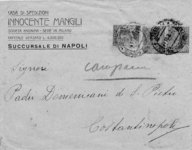 CASA DI SPEDIZIONI
INNOCENTE MANGILI
SOCIETÀ ANONIMA - SEDE IN MILANO
CAPITALE VERSATO L. 4.000.000
SUCCURSALE DI NAPOLI
Signori
Padri Domenicani di S. Pietro
Costantinopoli